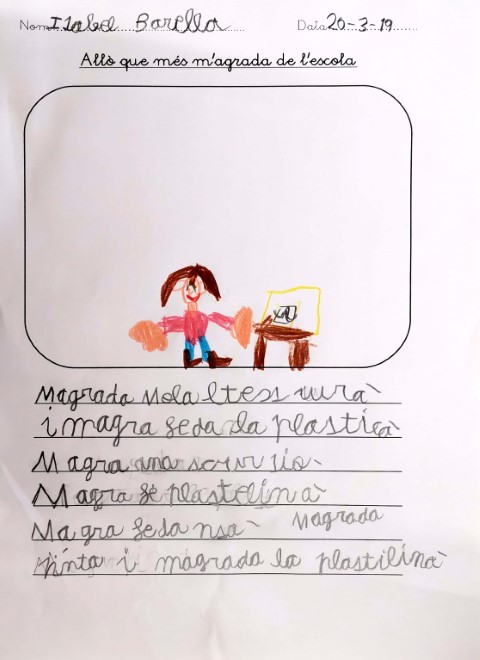 Nom: Isabel Barella Data 20-3-19
Allò que més m'agrada de l'escola
Magrada mola
i magra feda la plastica
Magra
Magra fe plastelina
Magra feda Magrada
Pinta i magrada la plastilina